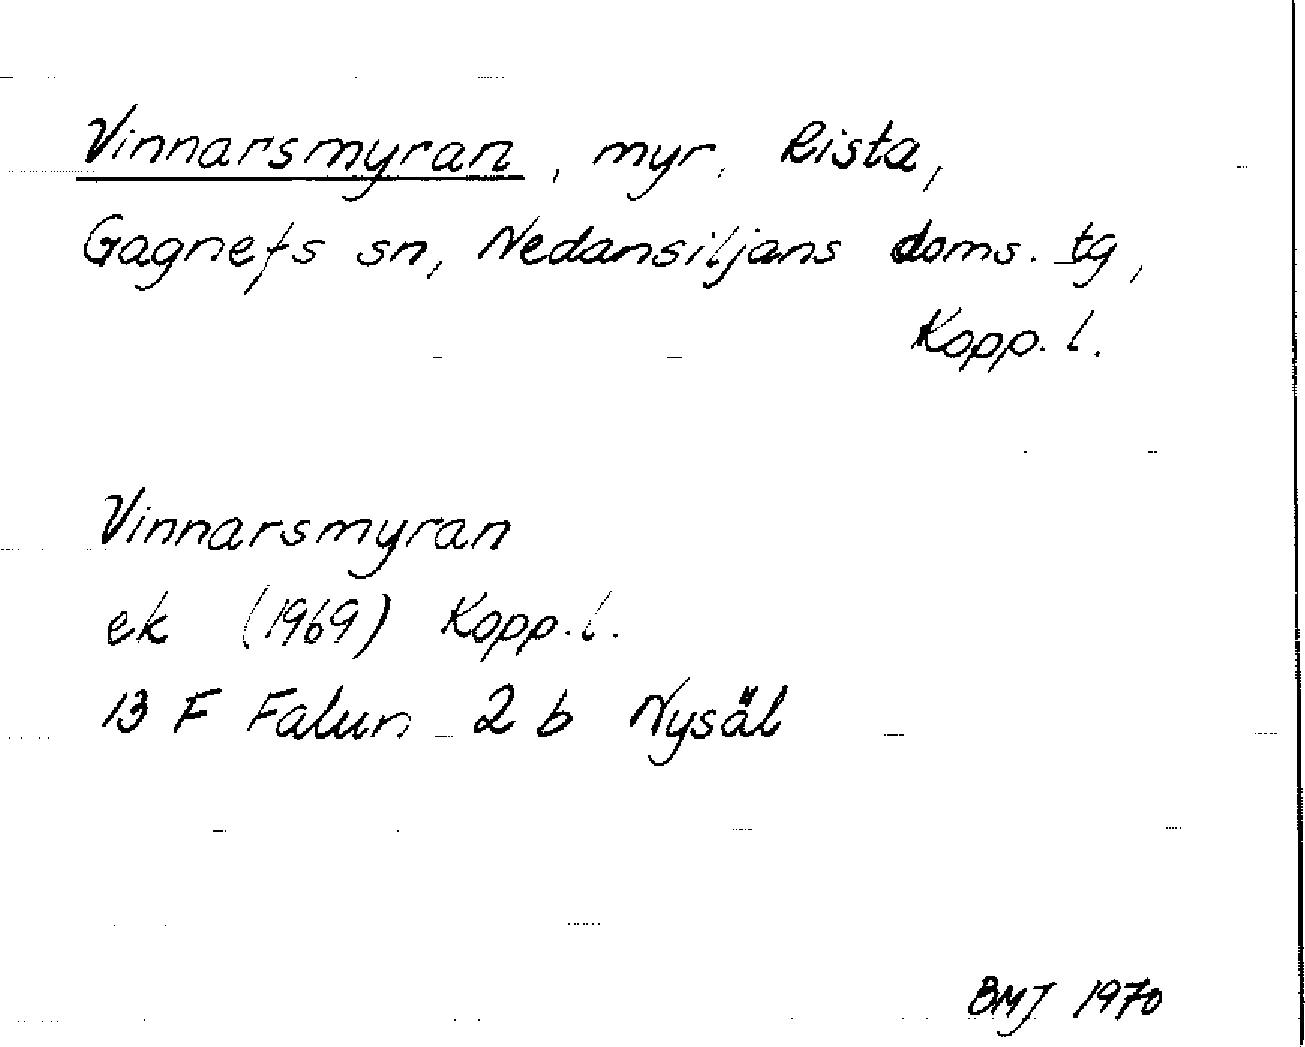 Vinnarsmyran, myr, Rista,
Gagnefs sn, Nedansiljans doms. tg,
Kopp. l.
Vinnarsmyran
ek (1969) Kopp. l.
13 F Falun 2 b Nysäl
BMJ 1970